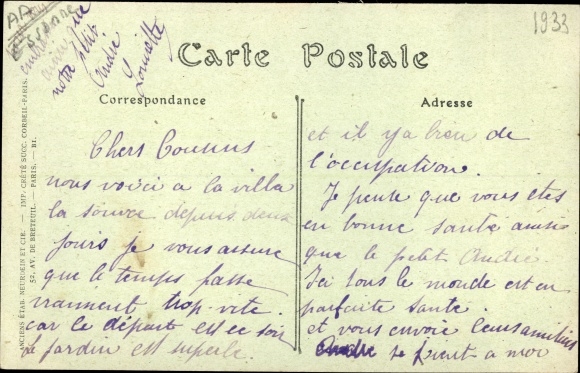 1933
AA
Réponse
notre petit
André
Louisette
Carte Postale
Correspondance
Adresse
ANCIENS ÉTAB. NEURDEIN ET CIE. — IMP. CRÉTÉ SUCC. CORBEIL-PARIS.
52, AV. DE BRETEUIL. — PARIS. — BI.
Chers Cousins
nous voici a la villa
la source depuis deux
jours je vous assure
que le temps passe
vraiment trop vite.
car le départ est ce soir
le jardin est superbe.
et il y a bien de
l'occupation.
Je pense que vous etes
en bonne santé ainsi
que le petit André.
Ici tous le monde est en
parfaite santé.
et vous envoie leurs amitiés
se joient a moi